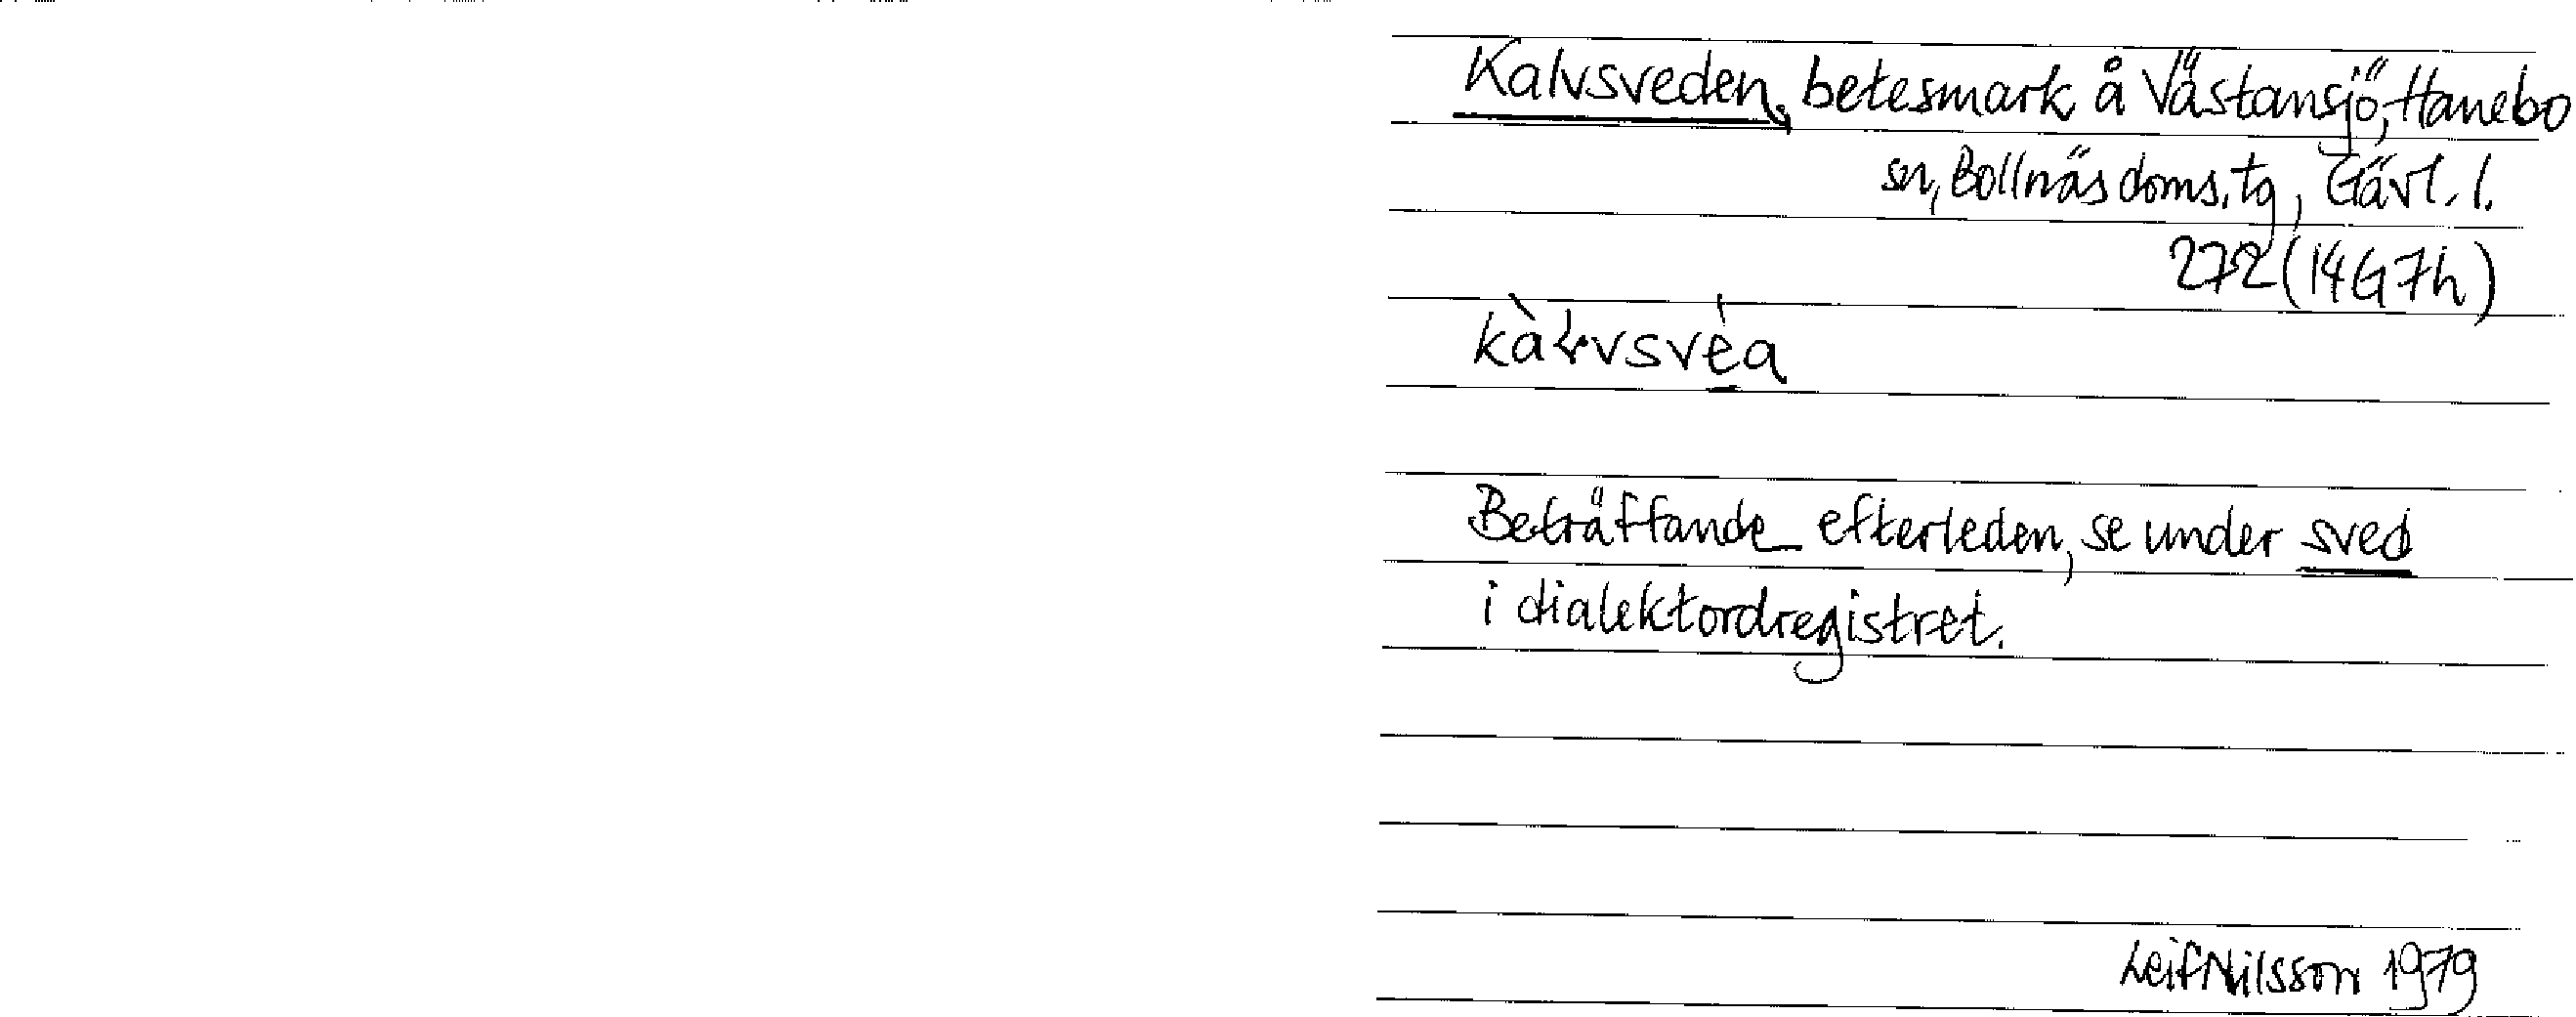 Kalvsveden, betesmark å Västansjö, Hanebo
sn, Bollnäs doms.tg, Gävl. l.
272 (14G7h)
kàłvsve̠̍a
Beträffande efterleden, se under sved
i dialektordregistret.
Leif Nilsson 1979